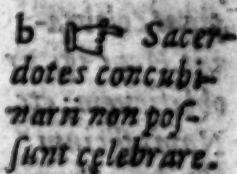 b ☞ Sacer-
dotes concubi-
narii non poſ-
ſunt celebrare.